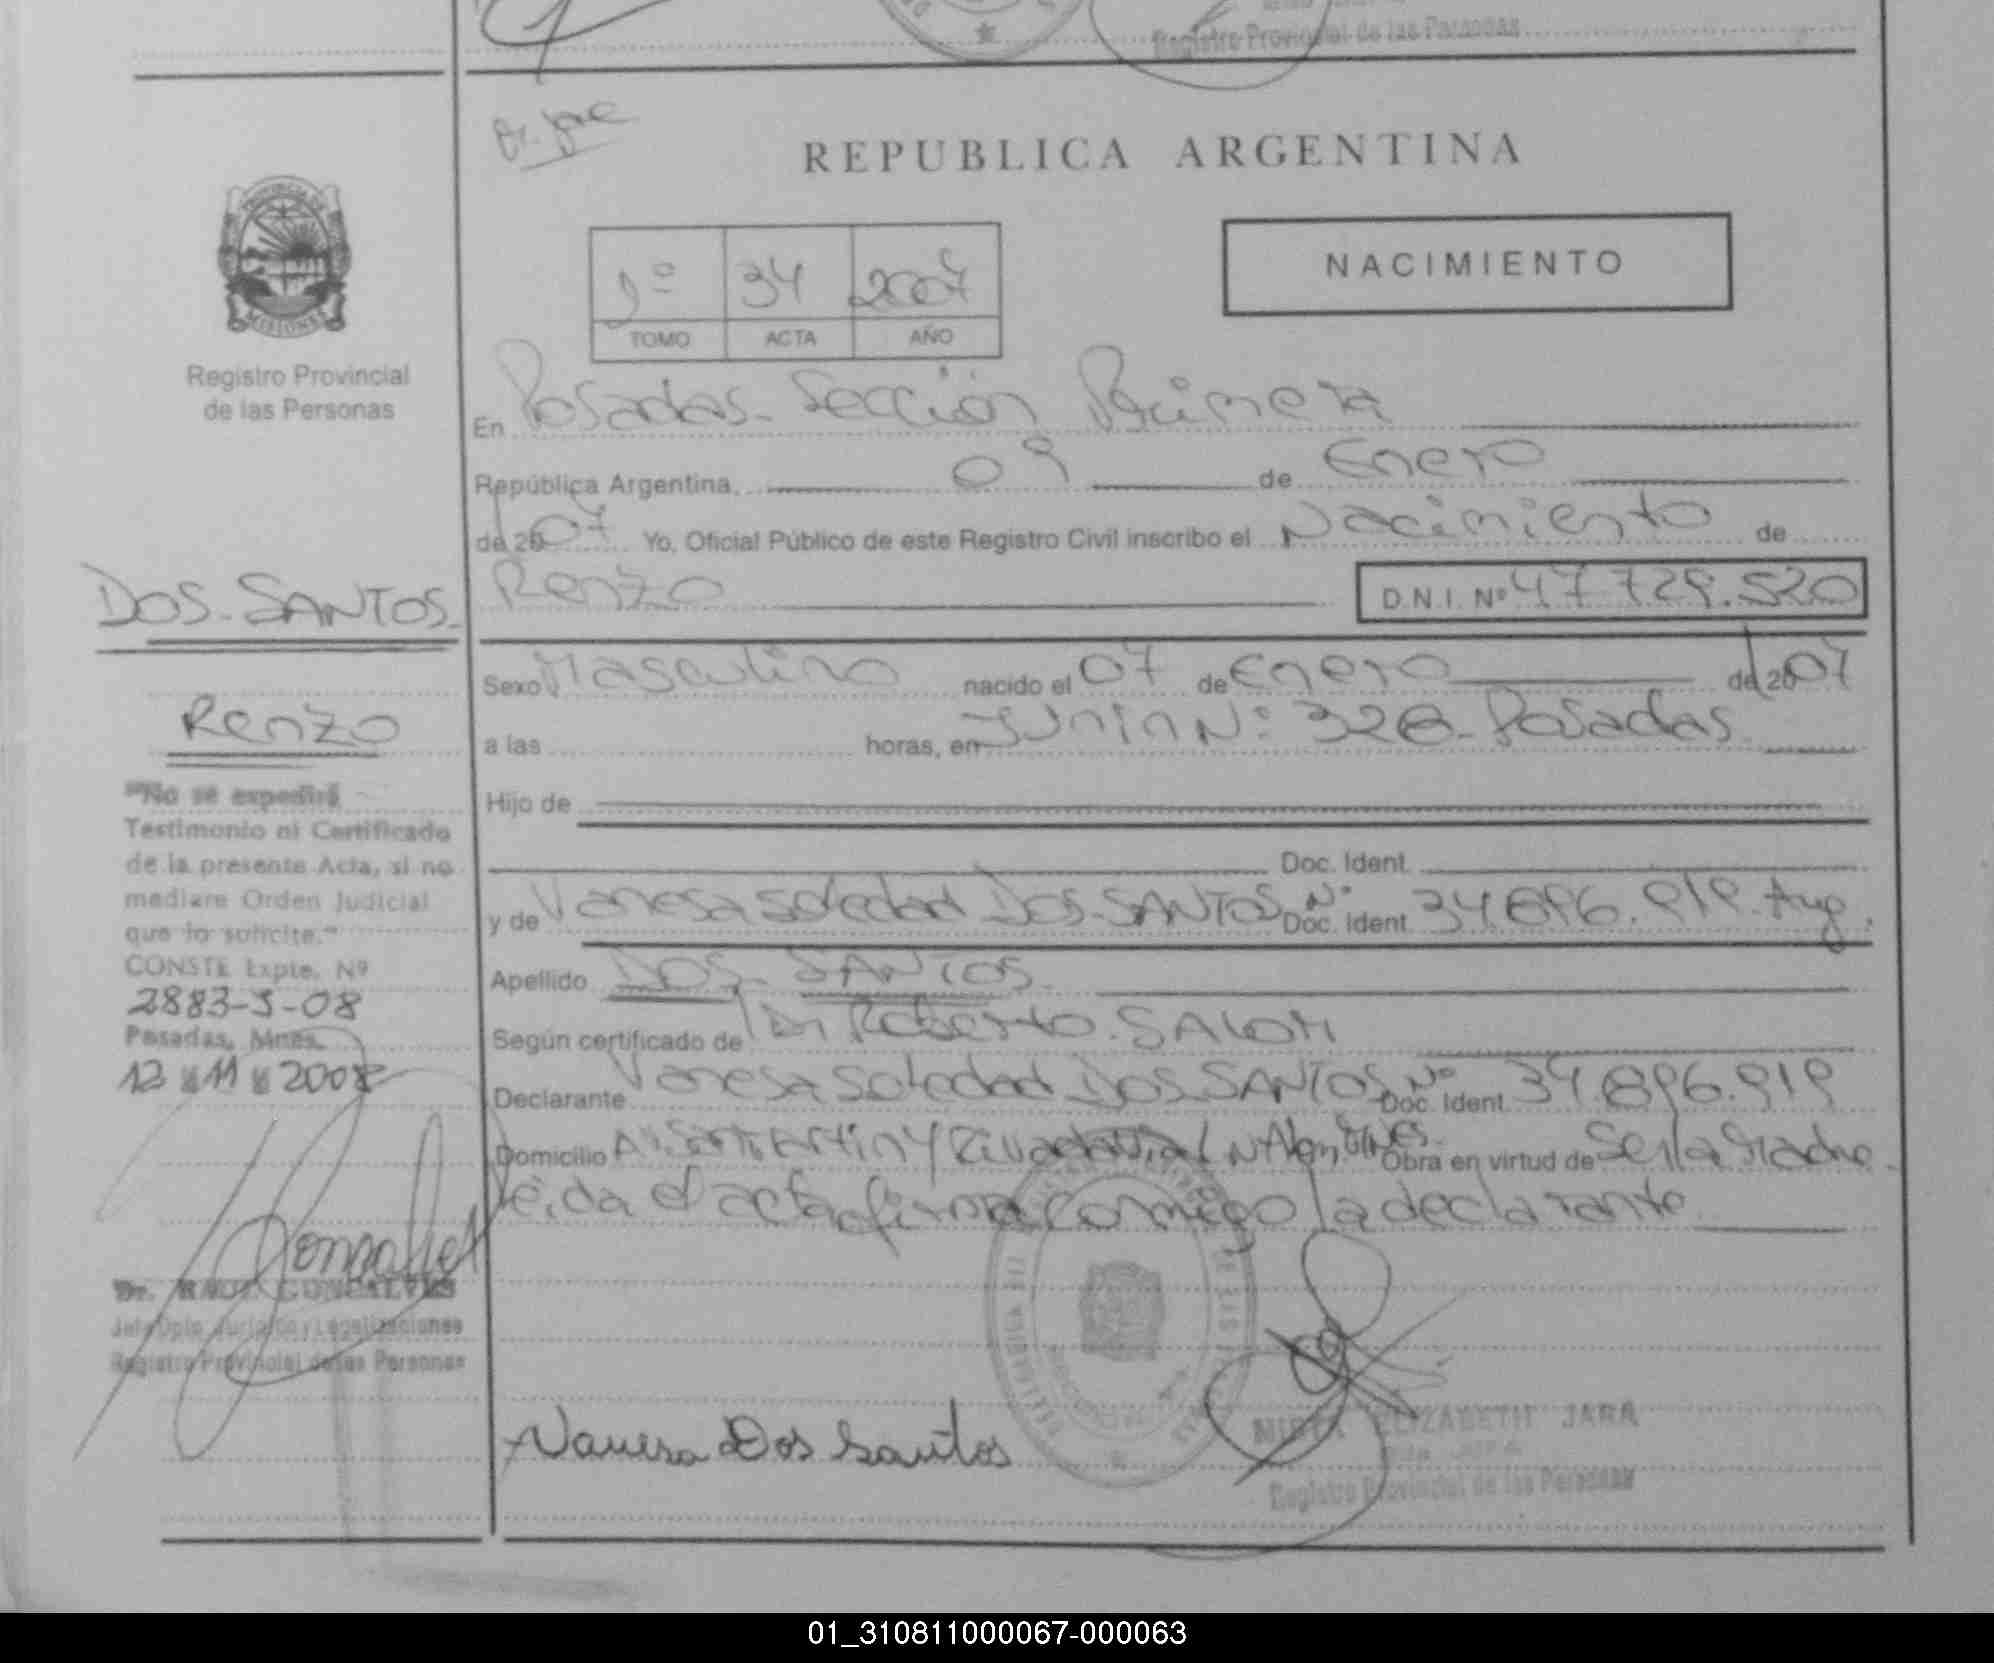 Registro Provincial de las Personas
REPUBLICA ARGENTINA
1º 34 2007
TOMO ACTA AÑO
NACIMIENTO
PROVINCIA DE
MISIONES
Registro Provincial
de las Personas
En Posadas - Sección Primera
República Argentina, 09 de Enero
de 2007 Yo, Oficial Público de este Registro Civil inscribo el Nacimiento de
Renzo D.N.I. Nº 47 729.520
Sexo Masculino nacido el 07 de Enero de 2007
a las horas, en Junin Nº: 328 - Posadas
Hijo de
Doc. Ident.
y de Vanesa Soledad DOS SANTOS Doc. Ident. Nº 34.896.919. Arg.
Apellido DOS - SANTOS.
Según certificado de Dr Roberto. SALOM
Declarante Vanesa Soledad DOS SANTOS Doc. Ident. Nº 34.896.919
Domicilio Av. San Martin y Rivadavia Obra en virtud de Ser la Madre.
leída el acta firma conmigo la declarante
Vanesa Dos Santos
MIRTA ELIZABETH JARA
Registro Provincial de las Personas
DOS - SANTOS.
Renzo
"No se expedirá
Testimonio ni Certificado
de la presente Acta, si no
mediare Orden Judicial
que lo solicite."
CONSTE Expte. Nº
2883-S-08
Posadas, Mnes.
12 11 2008
Goncalves
Dr. RAUL GONCALVES
Jefe Dpto. Jurídico y Legalizaciones
Registro Provincial de las Personas
01_310811000067-000063